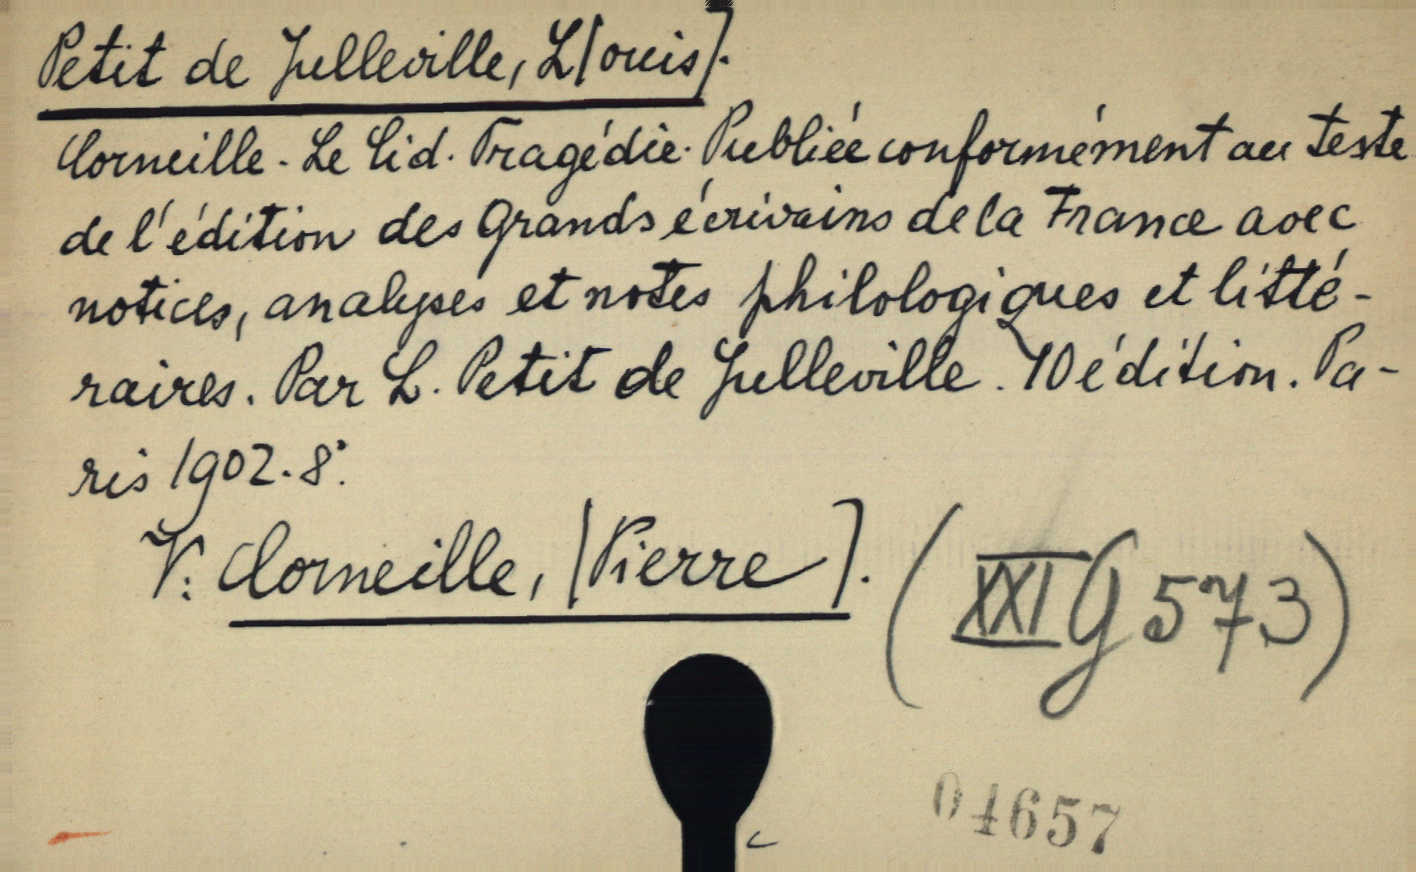 Petit de Julleville, L[ouis].
Corneille. Le Cid. Tragédie. Publiée conformément au texte
de l'édition des Grands écrivains de la France avec
notices, analyses et notes philologiques et litté-
raires. Par L. Petit de Julleville. 10 édition. Pa-
ris 1902. 8°.
V: Corneille, [Pierre].
(XXI G 573)
04657